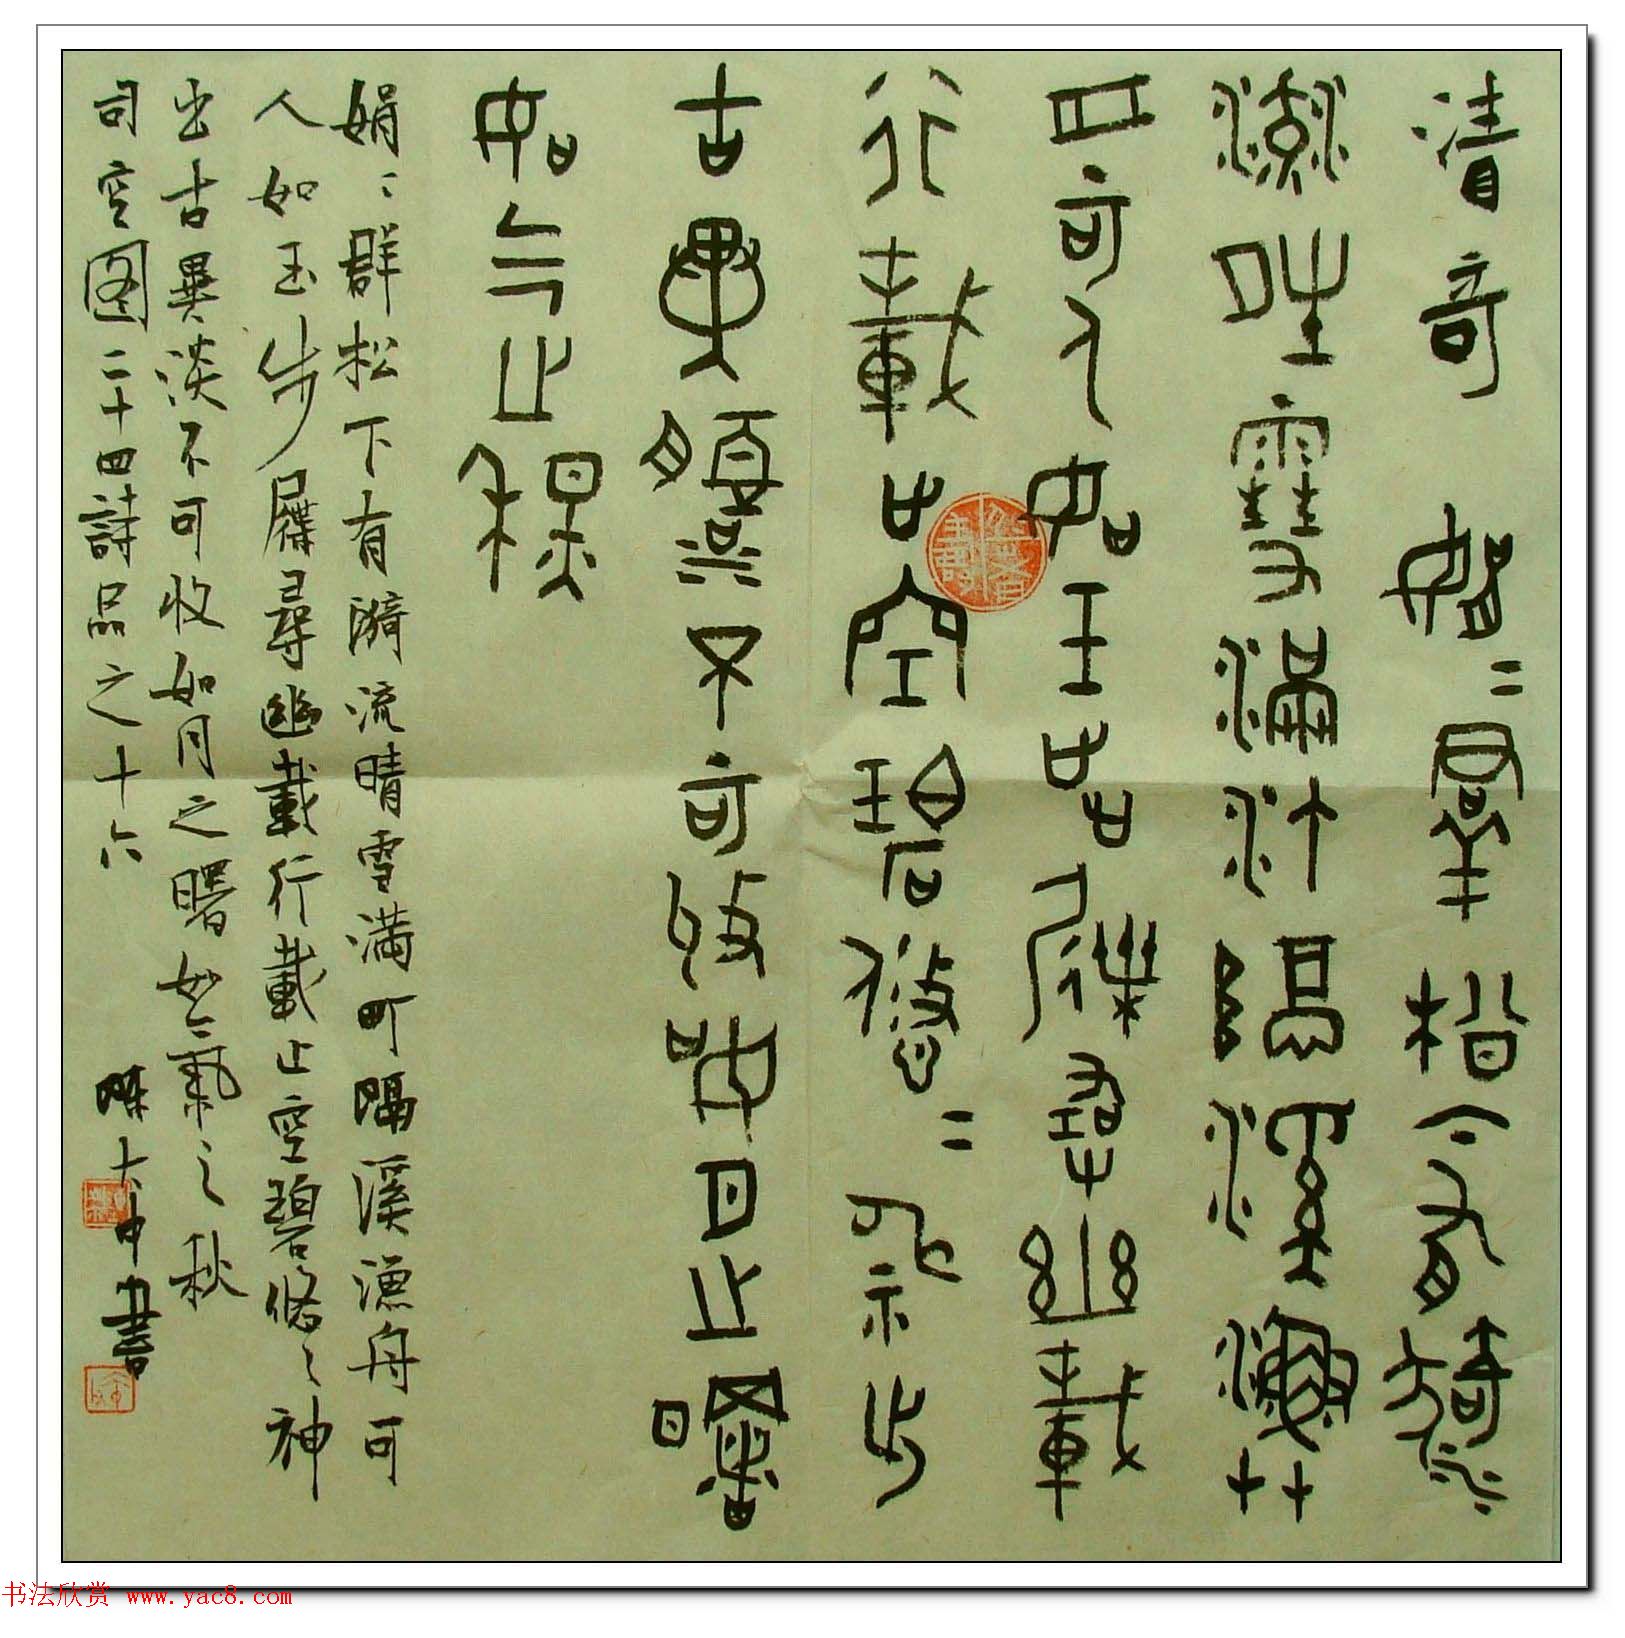 清奇 娟〻羣松下有漪
流晴雪滿汀隔溪漁
舟可人如玉步屧尋幽載
行載止空碧悠〻神出
古異淡不可收如月之曙
如气之秋
娟〻群松下有漪流晴雪满町隔溪漁舟可
人如玉步屧尋幽載行載止空碧悠〻神
出古異淡不可收如月之曙如氣之秋
司空图二十四詩品之十六
陳大中書
书法欣赏 www.yac8.com